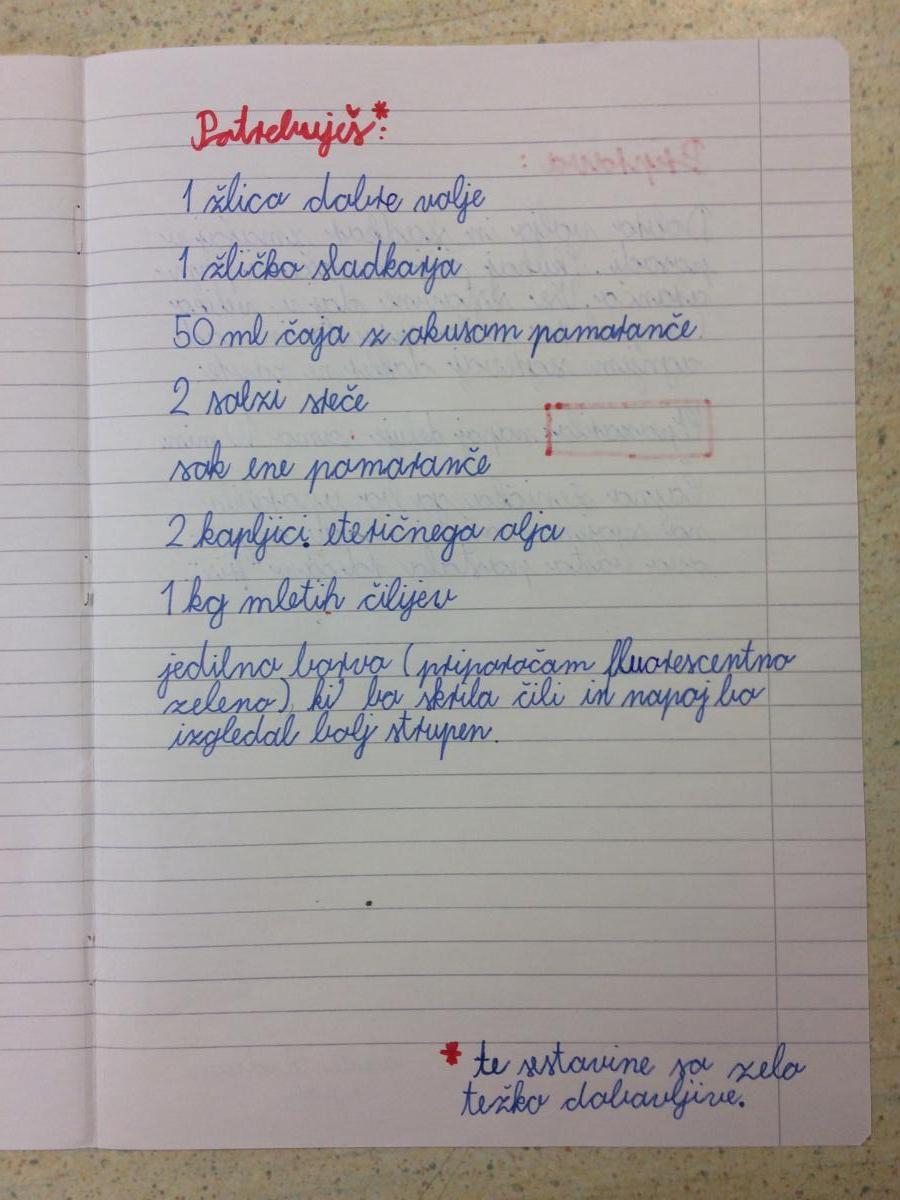 Potrebuješ*:
1 žlica dobre volje
1 žličko sladkorja
50 ml čaja z okusom pomaranče
2 solzi sreče
sok ene pomaranče
2 kapljici eteričnega olja
1 kg mletih čilijev
jedilno barvo (priporočam fluorescentno
zeleno), ki bo skrila čili in napoj bo
izgledal bolj strupen.
* te sestavine so zelo
težko dobavljive.